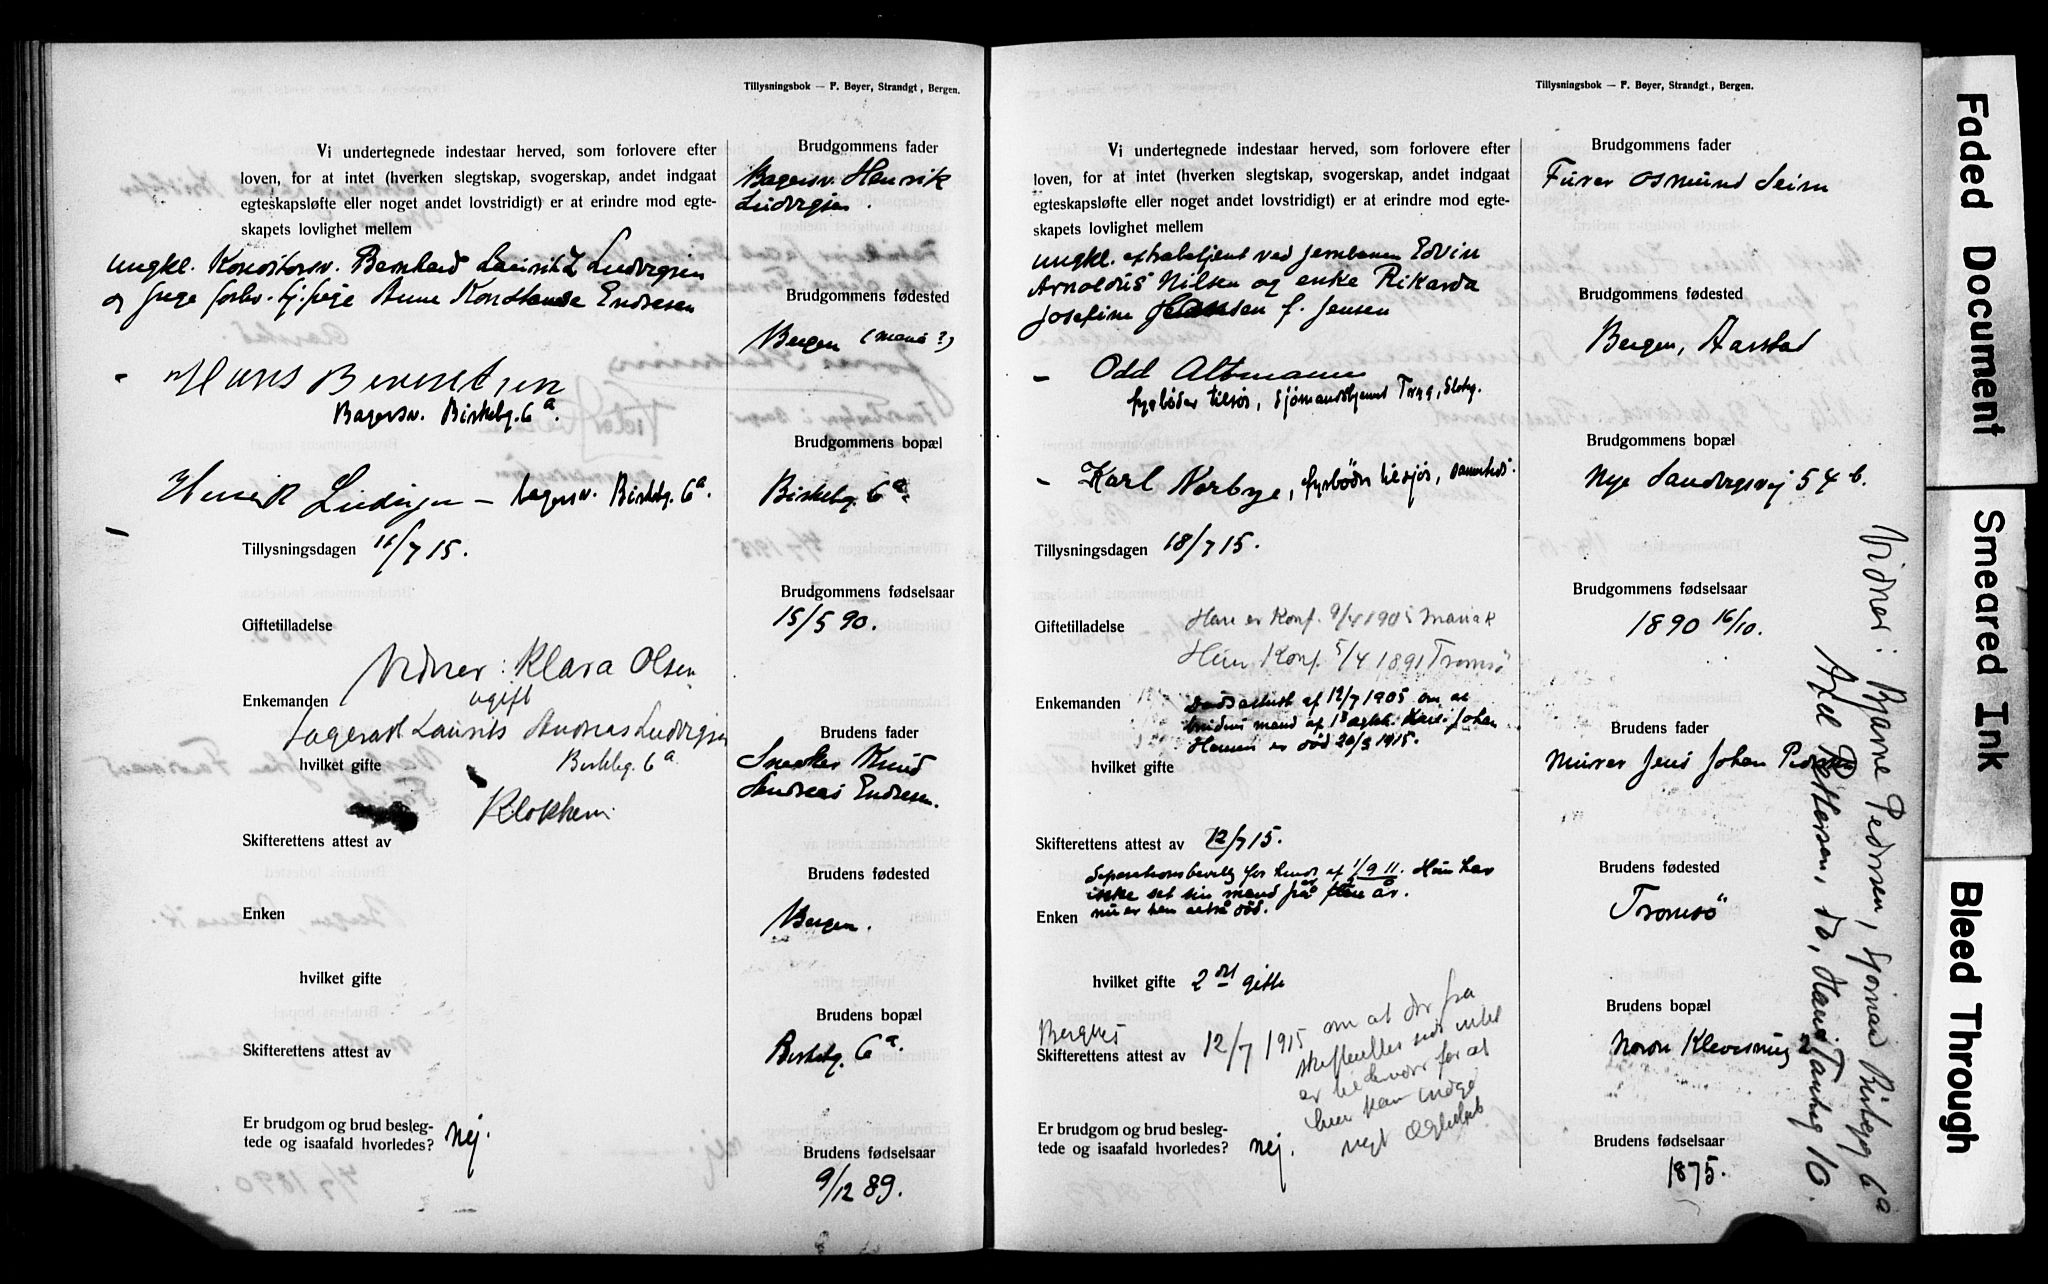 Tillysningsbok — F. Bøyer, Strandgt., Bergen.
Vi undertegnede indestaar herved, som forlovere efter
loven, for at intet (hverken slegtskap, svogerskap, andet indgaat
egteskapsløfte eller noget andet lovstridigt) er at erindre mod egte-
skapets lovlighet mellem
ungkl. Konditorsv. Bernhard Lauritz Ludvigsen
og pige forhv. tj.pige Anne Konstanse Endresen
Hans Berentsen
Bagersv. Birkebg. 6a.
Henrik Ludvigsen — bagersv. Birkebg. 6a.
Tillysningsdagen 11/7 15.
Giftetilladelse
Vidner: Klara Olsen
ugift
Enkemanden
Laurits Andreas Ludvigsen
Birkebg. 6a
hvilket gifte
Klokkeren
Skifterettens attest av
Enken
hvilket gifte
Skifterettens attest av
Er brudgom og brud besleg-
tede og isaafald hvorledes? nej.
Brudgommens fader
Bagersv. Henrik
Ludvigsen.
Brudgommens fødested
Bergen (Maria?)
Brudgommens bopæl
Birkebg. 6a.
Brudgommens fødselsaar
15/5 90.
Brudens fader
Snedker Knud
Andreas Endresen.
Brudens fødested
Bergen.
Brudens bopæl
Birkebg. 6a.
Brudens fødselsaar
9/12 89.
Tillysningsbok — F. Bøyer, Strandgt., Bergen.
Vi undertegnede indestaar herved, som forlovere efter
loven, for at intet (hverken slegtskap, svogerskap, andet indgaat
egteskapsløfte eller noget andet lovstridigt) er at erindre mod egte-
skapets lovlighet mellem
ungkl. extrabetjent ved jernbanen Edvin
Arnoldus Nilsen og enke Rikarda
Josefine Hansen f. Jensen
Odd Altmann
fyrbøder tilsjøs, Sjømandshjemmet
Karl Norbye, fyrbøder tilsjøs, sammesteds.
Tillysningsdagen 18/7 15.
Giftetilladelse
Han er Konf. 9/4 1905 Mariak
Hun Konf. 5/4 1891 Tromsø
Enkemanden
Dødsattest af 12/7 1905 om at
brudens mand af 1ste ægtesk. Karl Johan
Hansen er død 20/3 1915.
hvilket gifte
Skifterettens attest av 12/7 15.
Separationsbevilg for hende af 1/9 11. Hun har
ikke set sin mand på flere år.
nu er han altså død.
Enken
hvilket gifte 2det gifte
Bergens
Skifterettens attest av 12/7 1915 om at der fra
skifterettens side intet
er til hinder for at
hun kan indgå
nyt Ægteskab
Er brudgom og brud besleg-
tede og isaafald hvorledes? nej.
Brudgommens fader
Furer Osmund Seim
Brudgommens fødested
Bergen, Aarstad
Brudgommens bopæl
Nye Sandvigsvej 54 b.
Brudgommens fødselsaar
1890 16/10.
Brudens fader
Murer Jens Johan Pedersen
Brudens fødested
Tromsø
Brudens bopæl
Brudens fødselsaar
1875.
Vidner: Bjarne Pedersen, Sjømand 6a
Axel Pettersen, do, 10.
Faded Document
Smeared Ink
Bleed Through